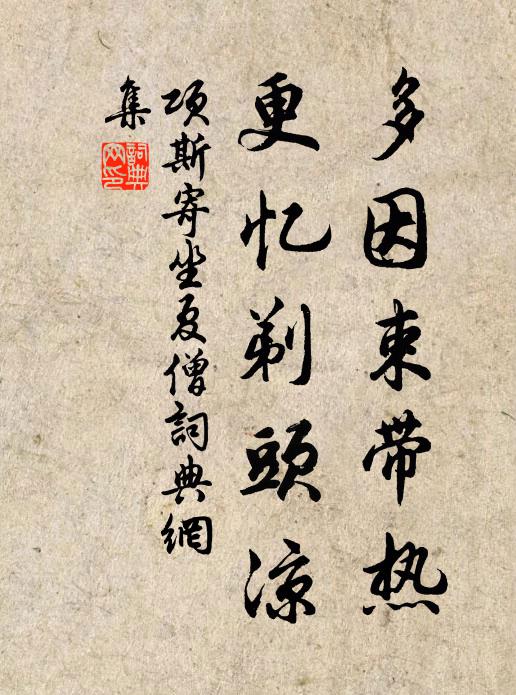 多因束带热
更忆剃頭凉
项斯寄坐夏僧詞典網
集
詞典网印